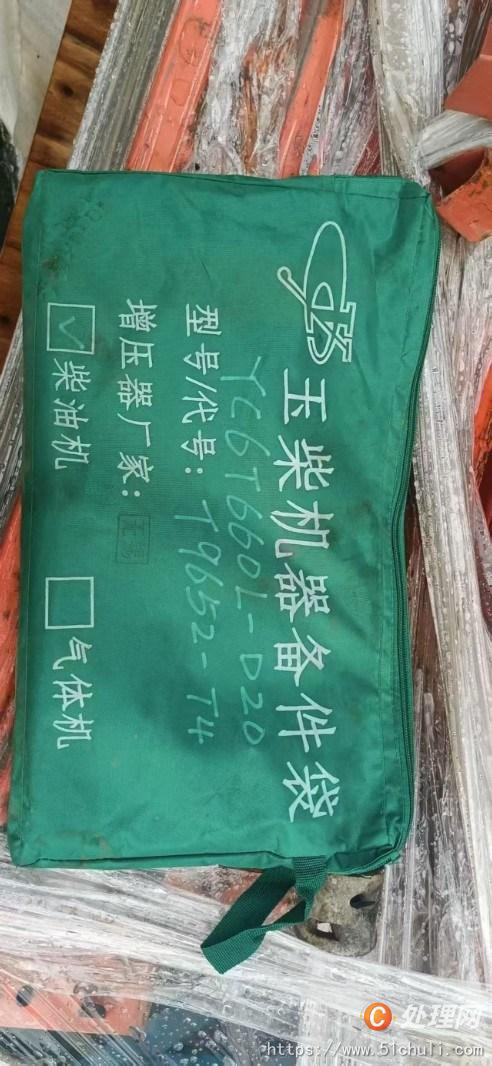 玉柴机器备件袋
YC6T660L-D20
型号/代号: T9652-T4
增压器厂家:
✓ 柴油机 □ 气体机
C 处理网
https://www.51chuli.com